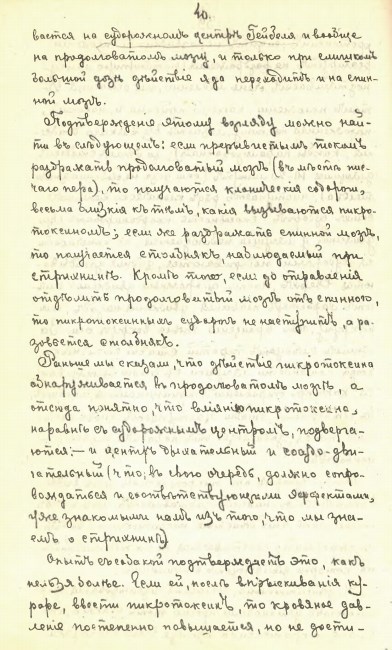 40.
вается на судорожномъ центрѣ Гейбеля и вообще
на продолговатомъ мозгу, и только при слишкомъ
большой дозѣ дѣйствіе яда переходитъ и на спин-
ной мозгъ.
Подтвержденіе этому взгляду можно най-
ти въ слѣдующемъ: если прерывистымъ токомъ
раздражать продолговатый мозгъ (въ мѣстѣ пис-
чаго пера), то получаются клоническія судороги,
весьма близкія къ тѣмъ, какія вызываются пикро-
токсиномъ; если же раздражать спинной мозгъ,
то получается столбнякъ, наблюдаемый при
стрихнинѣ. Кромѣ того, если до отравленія
отдѣлить продолговатый мозгъ отъ спинного,
то пикротоксинныхъ судорогъ не наступитъ, а ра-
зовьется столбнякъ.
Раньше мы сказали, что дѣйствіе пикротоксина
обнаруживается въ продолговатомъ мозгѣ, а
отсюда понятно, что вліянію пикротоксина,
наравнѣ съ судорожнымъ центромъ, подверга-
ются:— и центръ дыхательный и сосудо-дви-
гательный (что, въ свою очередь, должно сопро-
вождаться и соотвѣтствующими эффектами,
уже знакомыми намъ изъ того, что мы зна-
емъ о стрихнинѣ)
Опытъ съ собакой подтверждаетъ это, какъ
нельзя болѣе. Если ей, послѣ впрыскиванія ку-
раре, ввести пикротоксинъ, то кровяное дав-
леніе постепенно повышается, но не дости-